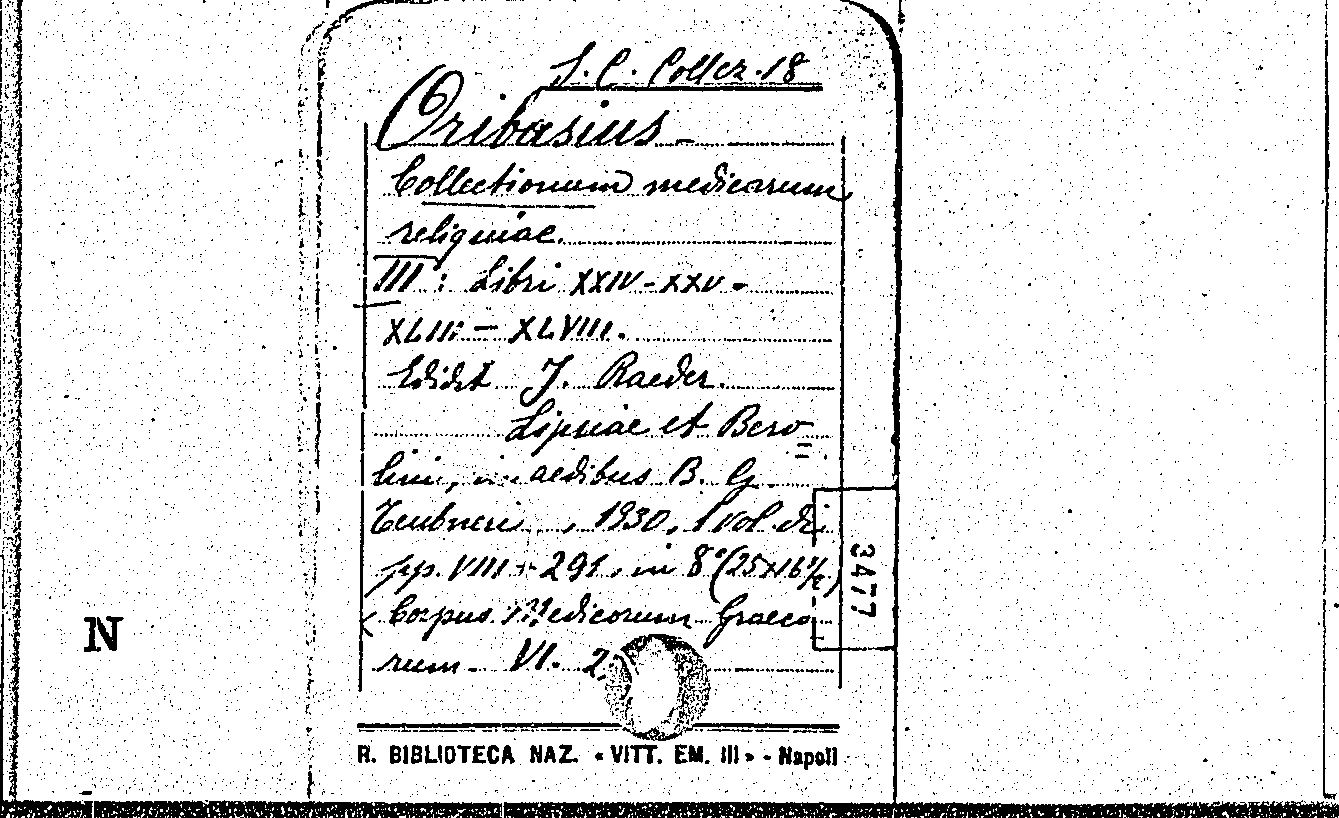 S. C. Collez. 18
Oribasius -
Collectionum medicarum
reliquiae.
III : Libri XXIV - XXV -
XLIII - XLVIII.
Edidit J. Raeder.
Lipsiae et Bero-
lini, in aedibus B. G.
Teubneri, 1930, 1 vol. di
pp. VIII + 291, in 8° (25x16½)
(Corpus Medicorum Graeco
rum - VI. 2,
3477
N
R. BIBLIOTECA NAZ. « VITT. EM. III » - Napoli